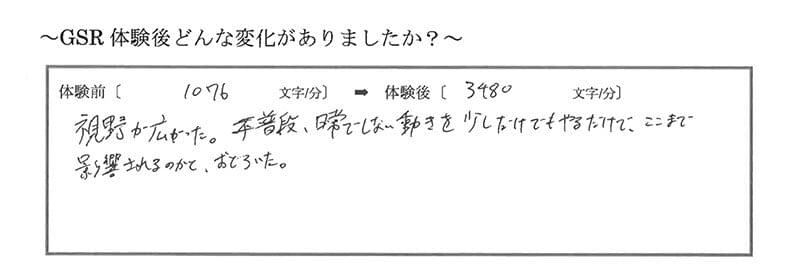 ～GSR 体験後どんな変化がありましたか？～
体験前〔 1076 文字/分〕 ➡ 体験後〔 3480 文字/分〕
視野が広がった。普段、日常でしない動きを少しだけでもやるだけで、ここまで
影響されるのかと、おどろいた。